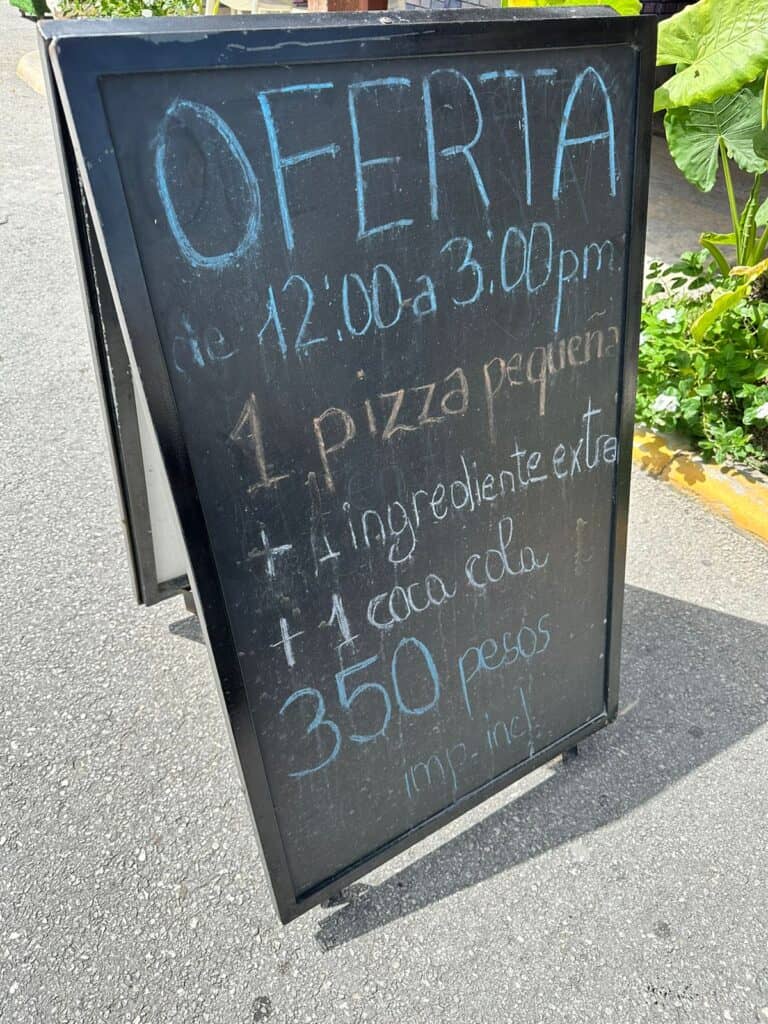 OFERTA
de 12:00 a 3:00 p.m
1 pizza pequeña
+ 1 ingrediente extra
+ 1 coca cola
350 pesos
imp. incl.